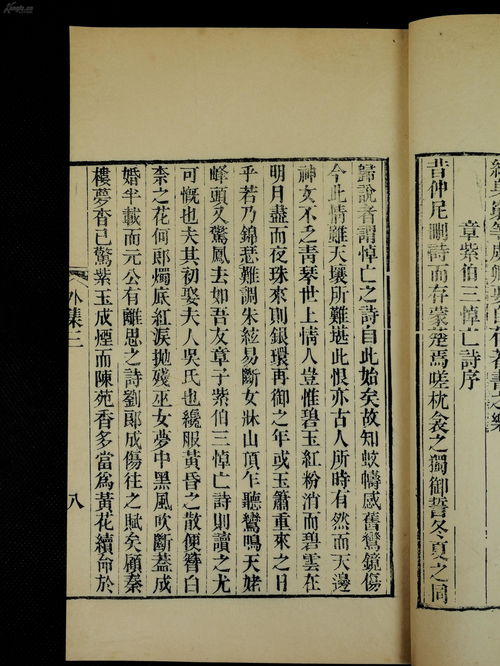 章紫伯三悼亡詩序
昔仲尼刪詩而存蒙楚焉嗟枕衾之獨御誓冬夏之同
歸說者謂悼亡之詩自此始矣故知蚊幬感舊鸞鏡傷
今此情雖天壤所難堪此恨亦古人所時有然而天邊
神女不乏青琴世上情人豈惟碧玉紅粉消而碧雲在
明月盡而夜珠來則銀環再御之年或玉簫重來之日
乎若乃錦瑟難調朱絃易斷女牀山頂乍聽鸞鳴天姥
峰頭又驚鳳去如吾友章子紫伯三悼亡詩則讀之尤
可慨也夫其初娶夫人吳氏也纔服黃昏之散便簪白
柰之花何郎燭底紅淚拋殘巫女夢中黑風吹斷蓋成
婚半載而元公有離思之詩劉郎成傷往之賦矣顧秦
樓夢杳已驚紫玉成煙而陳苑香多當爲黃花續命於
外集三 八